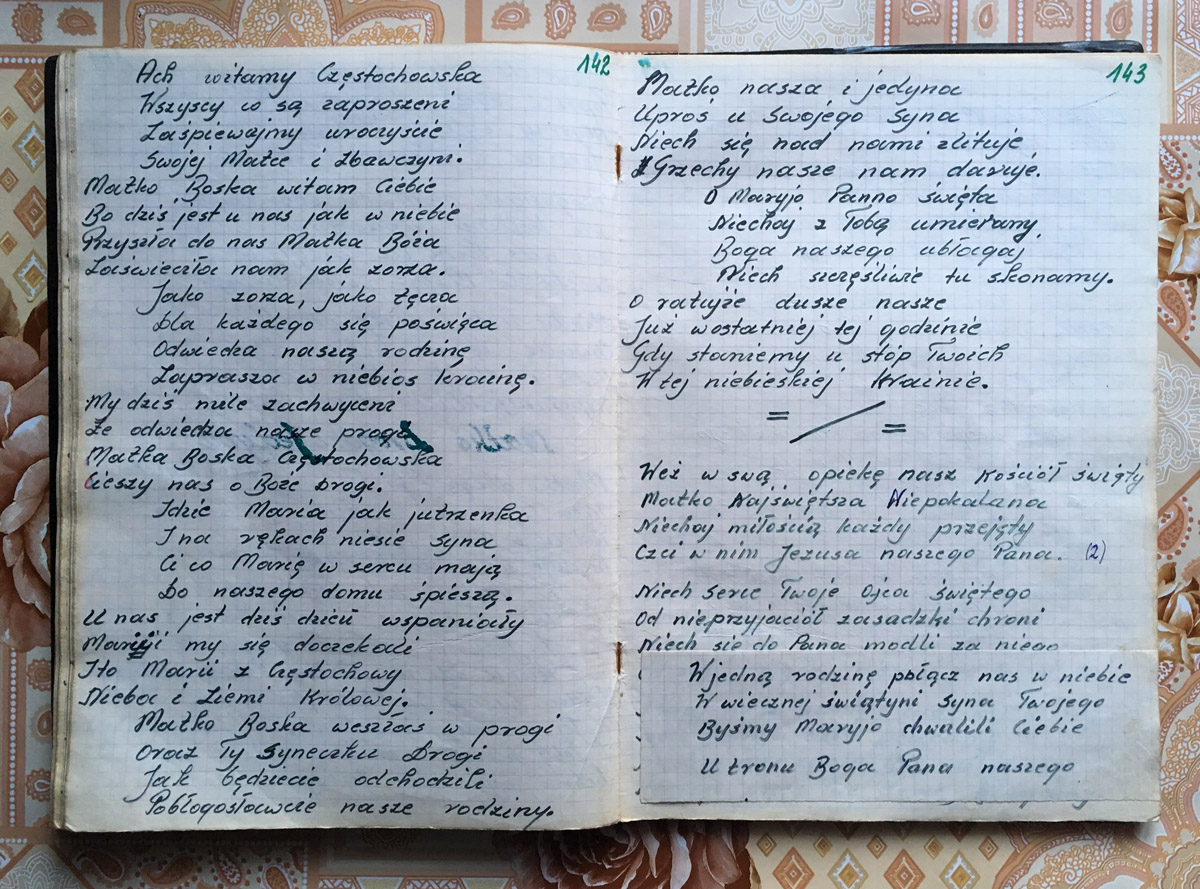 142
Ach witamy Częstochowska
Wszyscy co są zaproszeni
Zaśpiewajmy uroczyście
Swojej Matce i Zbawczyni.
Matko Boska witam Ciebie
Bo dziś jest u nas jak w niebie
Przyszła do nas Matka Boża
Zaświeciła nam jak zorza.
Jako zorza, jako tęcza
Dla każdego się poświęca
Odwiedza naszą rodzinę
Zaprasza w niebios krainę.
My dziś mile zachwyceni
Że odwiedza nasze progi
Matka Boska Częstochowska
Cieszy nas o Boże Drogi.
Idzie Maria jak jutrzenka
I na rękach niesie Syna
Ci co Marię w sercu mają
Do naszego domu śpieszą.
U nas jest dziś dzień wspaniały
Maryji my się doczekali
Ito Marii z Częstochowy
Nieba i Ziemi Królowej.
Matko Boska weszłaś w progi
Oraz Ty Syneczku Drogi
Jak będziecie odchodzili
Pobłogosławcie nasze rodziny.
143
Matko nasza i jedyna
Uproś u Swojego Syna
Niech się nad nami zlituje
Grzechy nasze nam daruje.
O Maryjo Panno święta
Niechaj z Tobą umieramy.
Boga naszego ubłagaj
Niech szczęśliwie tu skonamy.
O ratujże dusze nasze
Już wostatniej tej godzinie
Gdy staniemy u stóp Twoich
W tej niebieskiej Krainie.
= / =
Weź w swą opiekę nasz Kościół święty
Matko Najświętsza Niepokalana
Niechaj miłością każdy przejęty
Czci w nim Jezusa naszego Pana. (2)
Niech serce Twoje Ojca świętego
Od nieprzyjaciół zasadzki chroni
Niech się do Pana modli za niego
Wjedną rodzinę połącz nas w niebie
W wiecznej świątyni Syna Twojego
Byśmy Maryjo chwalili Ciebie
U tronu Boga Pana naszego